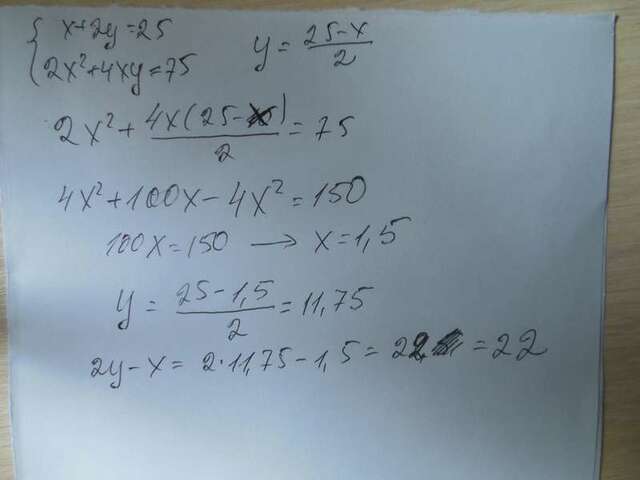 { x+2y=25
2x²+4xy=75
y = (25-x)/2
2x² + 4x(25-x)/2 = 75
4x²+100x-4x²=150
100x=150 → x=1,5
y = (25-1,5)/2 = 11,75
2y-x = 2·11,75-1,5 = 22 = 22